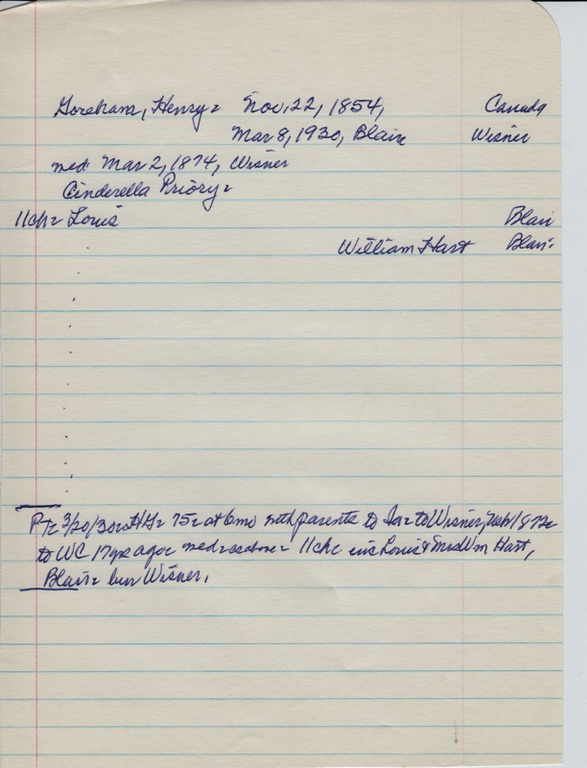 Goreham, Henry= Nov, 22, 1854, Canada
Mar 8, 1930, Blair Wisner
med: Mar 2, 1874, Wisner
Cinderella Priory=
11ch= Louis Blair
William Hart Blair
PT= 3/20/30 HG= 75= at 6mo with parents to Ia= to Wisner, Neb/1872=
to WC 17yrs ago= med=as above= 11ch= inc Louis & Mrs Wm Hart,
Blair= bur Wisner.